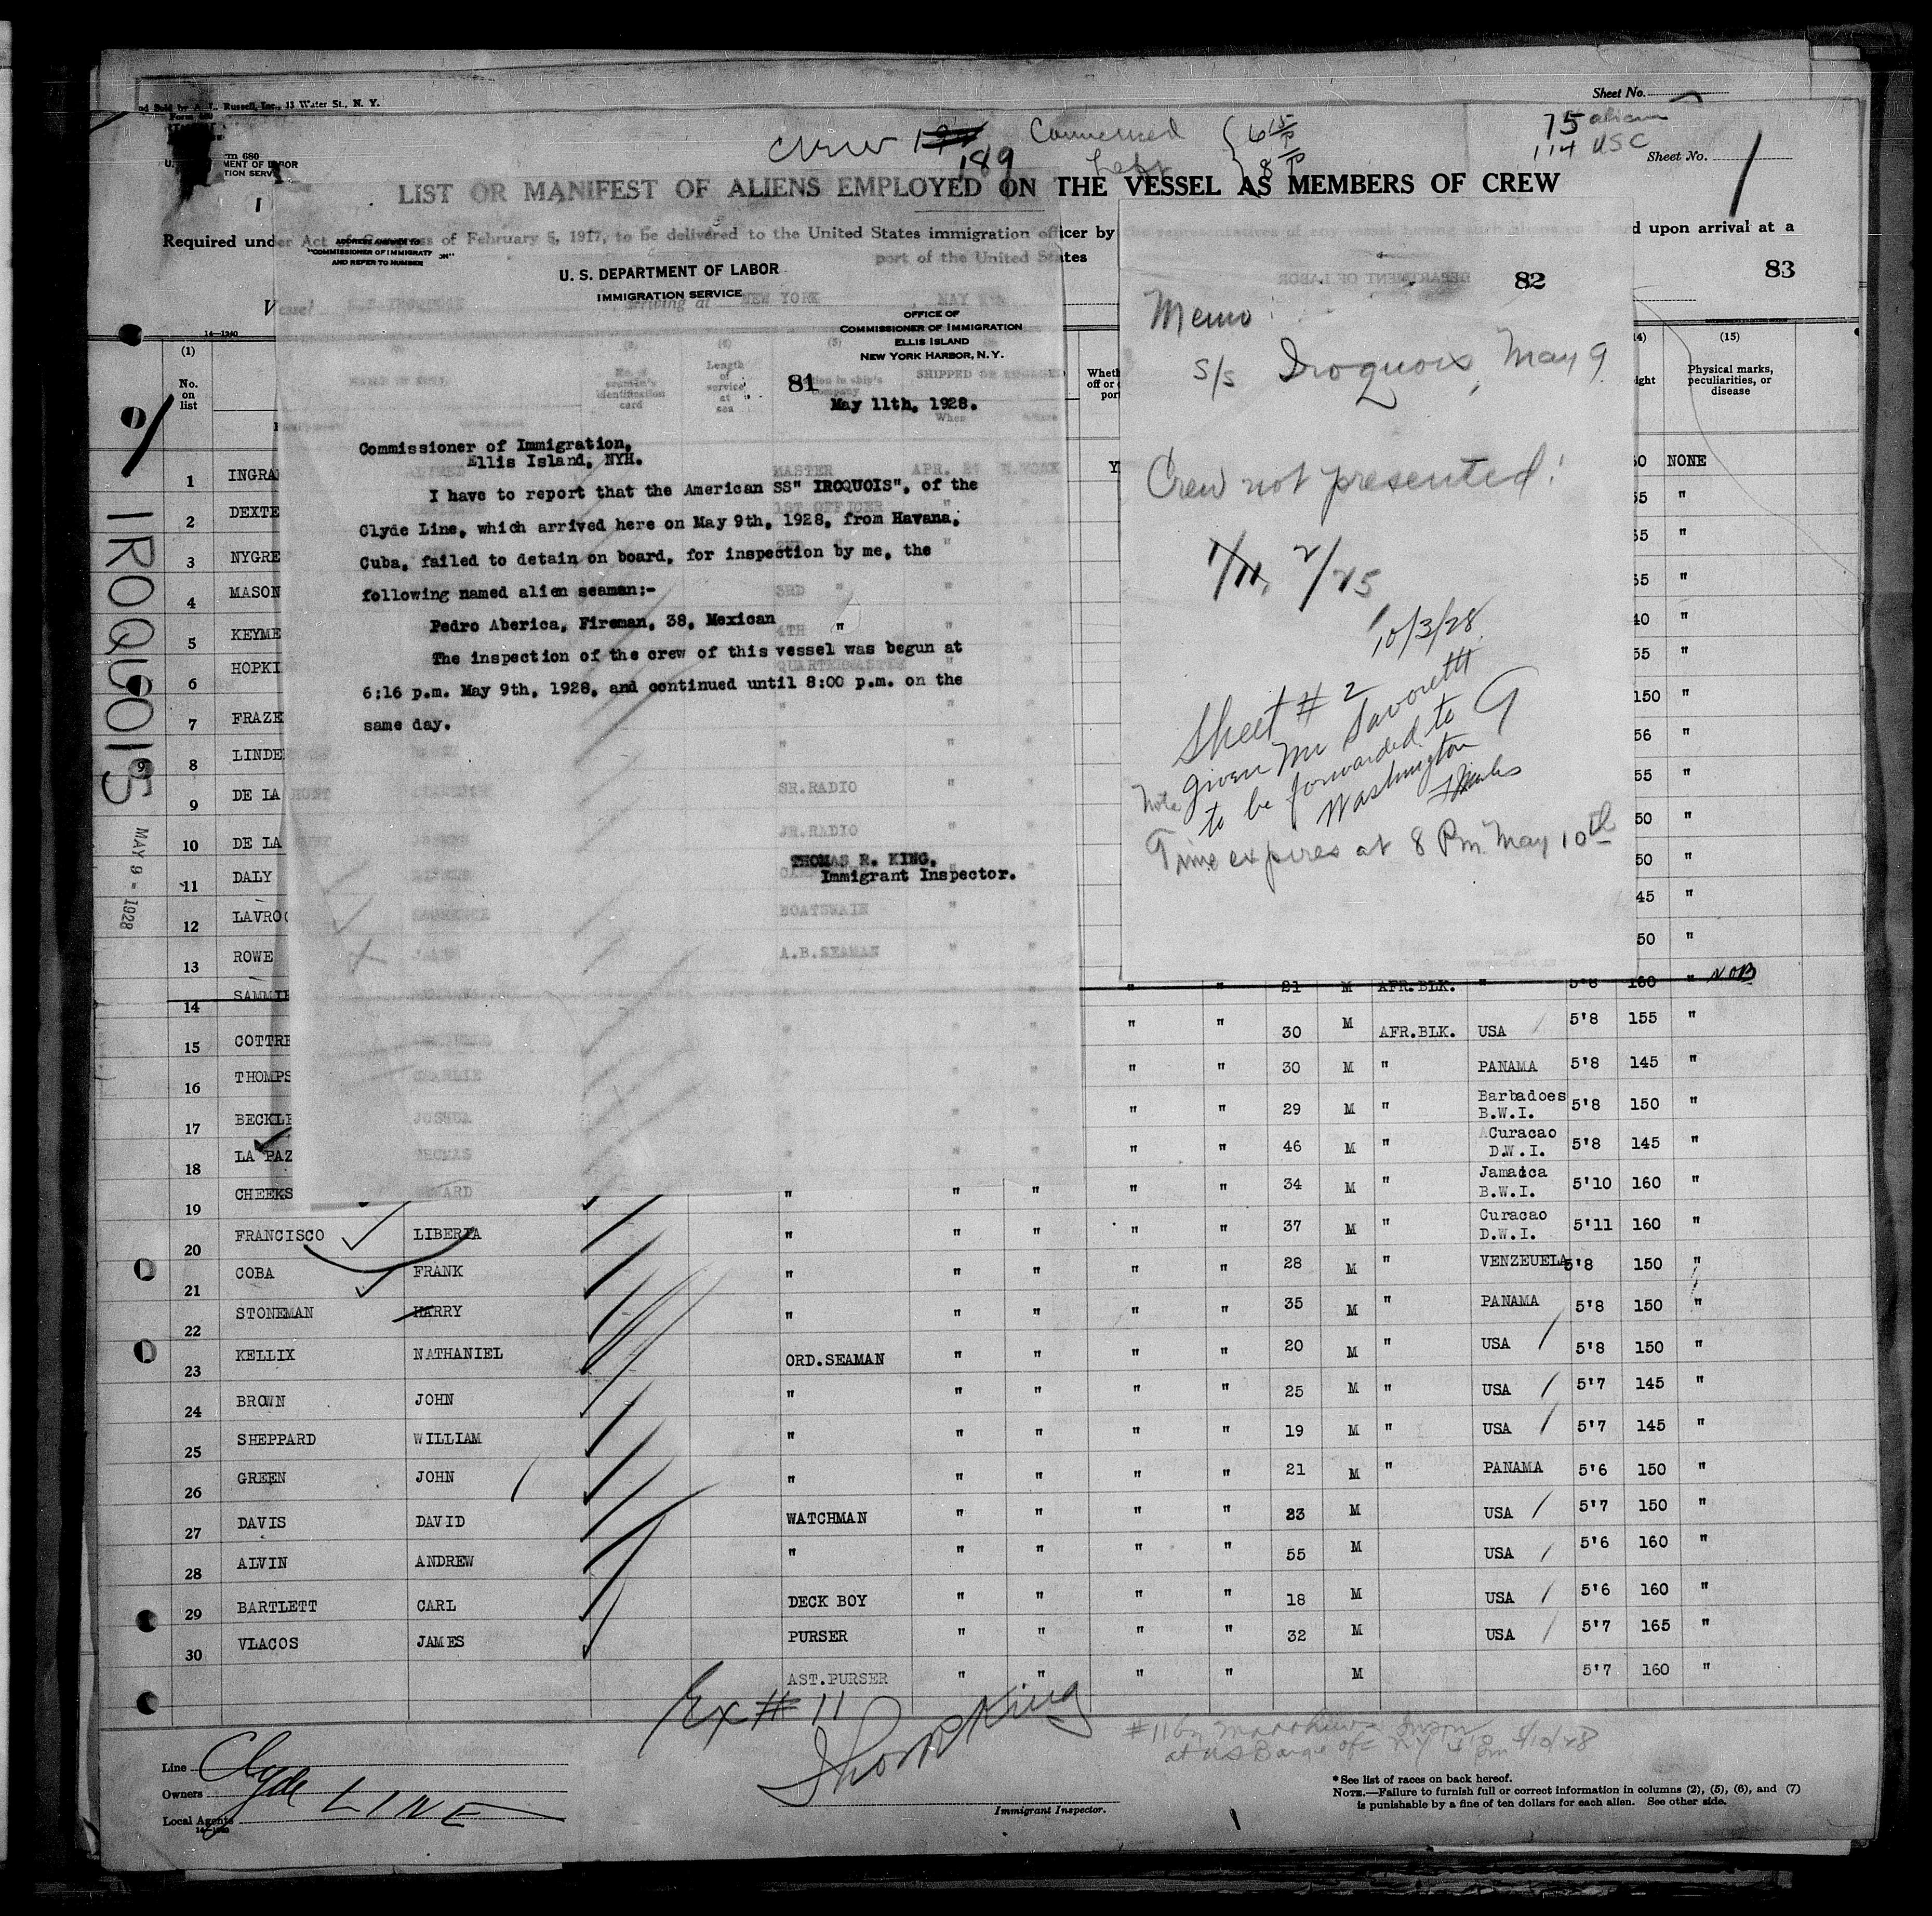 nd Sold by A. L. Russell, Inc., 13 Water St., N. Y.
Sheet No.
Form 680
MENT OF LABOR
TION SERV
Crew 189 Commenced 6 15/P
Left 8 P
75 aliens
114 USC
Sheet No. 1
LIST OR MANIFEST OF ALIENS EMPLOYED ON THE VESSEL AS MEMBERS OF CREW
Required under Act of Congress of February 5, 1917, to be delivered to the United States immigration officer by the representatives of any vessel having such aliens on board upon arrival at a
port of the United States
Vessel S.S. IROQUOIS arriving at NEW YORK MAY
83
ADDRESS ANSWER TO
"COMMISSIONER OF IMMIGRATION"
AND REFER TO NUMBER
U. S. DEPARTMENT OF LABOR
IMMIGRATION SERVICE
OFFICE OF
COMMISSIONER OF IMMIGRATION
ELLIS ISLAND
NEW YORK HARBOR, N. Y.
14-1240
81
May 11th, 1928.
Commissioner of Immigration,
Ellis Island, NYH.
I have to report that the American SS" IROQUOIS", of the
Clyde Line, which arrived here on May 9th, 1928, from Havana,
Cuba, failed to detain on board, for inspection by me, the
following named alien seaman:-
Pedro Aberica, Fireman, 38, Mexican
The inspection of the crew of this vessel was begun at
6:16 p.m. May 9th, 1928, and continued until 8:00 p.m. on the
same day.
THOMAS R. KING,
Immigrant Inspector.
DEPARTMENT OF LABOR
82
Memo
S/S Iroquois, May 9
Crew not presented!
1/11, 2/25
10/3/28
Sheet # 2
given Mr Savoretti
to be forwarded to
Washington
Note
Time expires at 8 Pm May 10th
IROQUOIS
MAY 9 - 1928
(1) No. on list
Length of service at sea
SHIPPED OR ENGAGED
When
(15) Physical marks, peculiarities, or disease
1 INGRA MASTER APR. N.YORK 60 NONE
2 DEXTE 1ST OFFICER 55 "
3 NYGRE 2ND " 35 "
4 MASON 3RD " 65 "
5 KEYME 4TH " 40 "
6 HOPKI QUARTERMASTER 55 "
7 FRAZE " 150 "
8 LINDE " 56 "
9 DE LA HUNT SR.RADIO " 55 "
10 DE LA JR.RADIO " 50 "
11 DALY 50 "
12 LAVRO LAURENCE BOATSWAIN " " 45 "
13 ROWE JAMES A.B.SEAMAN " " 50 "
14 SAMMIE " " " 21 M AFR.BLK. " 5'8 160 " NOB
15 COTTRE " " 30 M AFR.BLK. USA 5'8 155 "
16 THOMPS CHARLIE " " 30 M " PANAMA 5'8 145 "
17 BECKLE JOSHUA " " 29 M " Barbadoes B.W.I. 5'8 150 "
18 LA PAZ THOMAS " " 46 M " Curacao D.W.I. 5'8 145 "
19 CHEEKS EDWARD " " " " " 34 M " Jamaica B.W.I. 5'10 160 "
20 FRANCISCO LIBERTA " " " " " 37 M " Curacao D.W.I. 5'11 160 "
21 COBA FRANK " " " " " 28 M " VENZEUELA 5'8 150 "
22 STONEMAN HARRY " " " " " 35 M " PANAMA 5'8 150 "
23 KELLIX NATHANIEL ORD.SEAMAN " " " " 20 M " USA 5'8 150 "
24 BROWN JOHN " " " " " 25 M " USA 5'7 145 "
25 SHEPPARD WILLIAM " " " " " 19 M " USA 5'7 145 "
26 GREEN JOHN " " " " " 21 M " PANAMA 5'6 150 "
27 DAVIS DAVID WATCHMAN " " " " 23 M USA 5'7 150 "
28 ALVIN ANDREW " " " " " 55 M USA 5'6 160 "
29 BARTLETT CARL DECK BOY " " " " 18 M USA 5'6 160 "
30 VLACOS JAMES PURSER " " " " 32 M USA 5'7 165 "
AST.PURSER " " " " M 5'7 160 "
Ex # 11
Thos R King
#11 by Matthews Insp
at US Barge Ofc NY 4 pm 5/10/28
Line Clyde LINE
Owners
Local Agents
14-1240
Immigrant Inspector.
* See list of races on back hereof.
NOTE.—Failure to furnish full or correct information in columns (2), (5), (6), and (7)
is punishable by a fine of ten dollars for each alien. See other side.